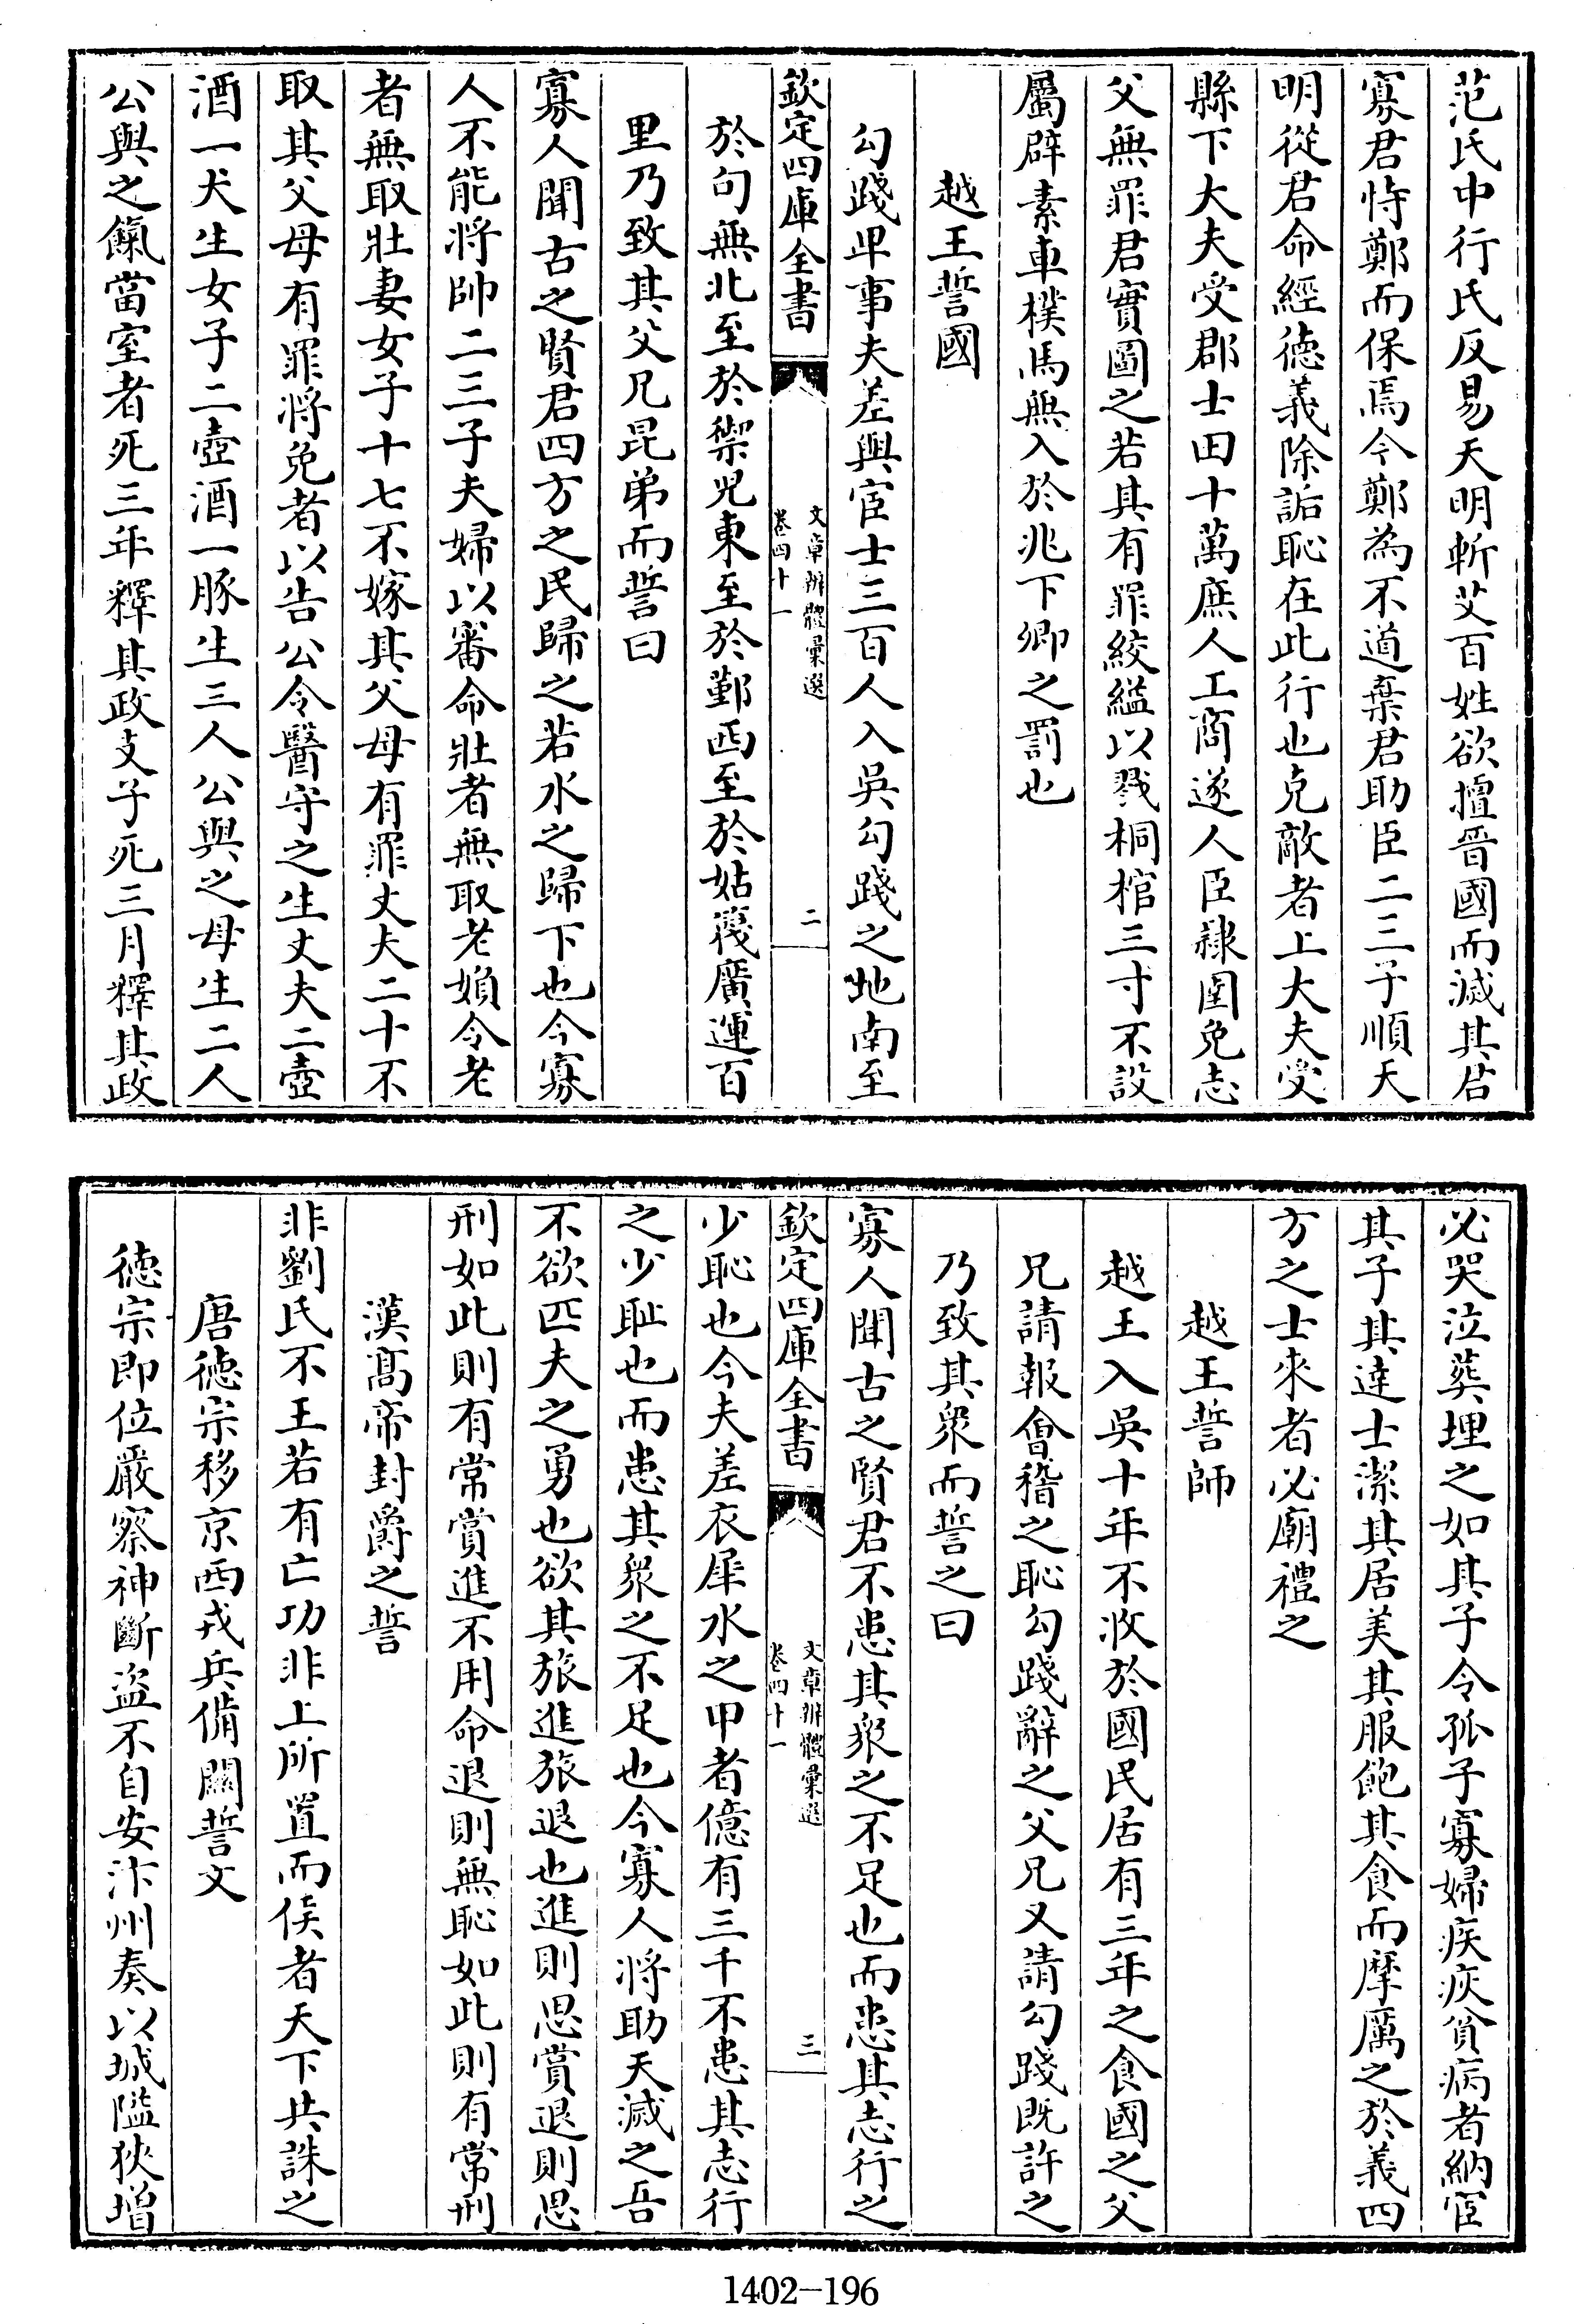 范氏中行氏反易天明斬艾百姓欲擅晉國而滅其君
寡君恃鄭而保焉今鄭為不道棄君助臣二三子順天
明從君命經徳義除詬恥在此行也克敵者上大夫受
縣下大夫受郡士田十萬庶人工商遂人臣隷圉免志
父無罪君實圖之若其有罪絞縊以戮桐棺三寸不設
屬辟素車樸馬無入於兆下卿之罰也
越王誓國
勾踐卑事夫差與宦士三百人入吳勾踐之地南至
欽定四庫全書
文章辨體彙選
卷四十一
二
於句無北至於禦兒東至於鄞西至於姑篾廣運百
里乃致其父兄昆弟而誓曰
寡人聞古之賢君四方之民歸之若水之歸下也今寡
人不能將帥二三子夫婦以審命壯者無取老婦令老
者無取壯妻女子十七不嫁其父母有罪丈夫二十不
取其父母有罪將免者以告公令醫守之生丈夫二壺
酒一犬生女子二壺酒一豚生三人公與之母生二人
公與之餼當室者死三年釋其政支子死三月釋其政
必哭泣葬埋之如其子令孤子寡婦疾疢貧病者納宦
其子其達士潔其居美其服飽其食而摩厲之於義四
方之士來者必廟禮之
越王誓師
越王入吳十年不收於國民居有三年之食國之父
兄請報會稽之恥勾踐辭之父兄又請勾踐既許之
乃致其衆而誓之曰
寡人聞古之賢君不患其衆之不足也而患其志行之
欽定四庫全書
文章辨體彙選
卷四十一
三
少恥也今夫差衣犀水之甲者億有三千不患其志行
之少耻也而患其衆之不足也今寡人將助天滅之吾
不欲匹夫之勇也欲其旅進旅退也進則思賞退則思
刑如此則有常賞進不用命退則無恥如此則有常刑
漢髙帝封爵之誓
非劉氏不王若有亡功非上所置而侯者天下共誅之
唐徳宗移京西戎兵備關誓文
徳宗即位嚴察神斷盗不自安汴州奏以城隘狹增
1402-196